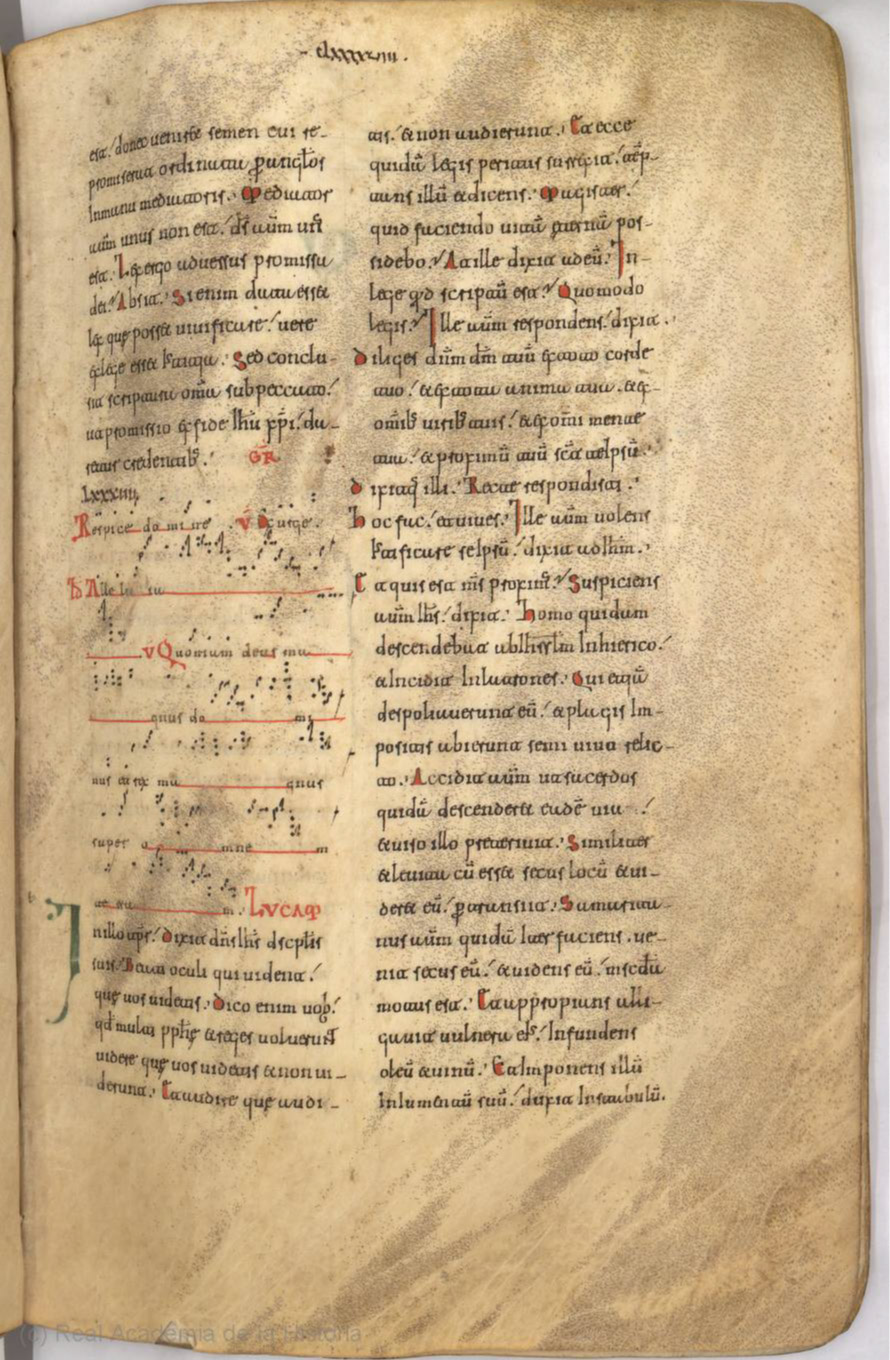 clxxxxuiii.
est. donec ueniret semen cui re-
promiserat ordinata p angl̄os
Inmanu mediatoris. Mediator
aūm unus non est. d̄s aūm un̄s
est. Lex ergo aduersus promissa
dei. Absit. Si enim data esset
lex quę posset uiuificare. uere
exlege esset Iustitia. Sed conclu-
sit scriptura om̄a sub peccato.
ut promissio ex fide Ih̄u xp̄i. da-
retur credentib;. GR
lxxxiiii
Respice domine. V Exurge.
Alleluia
V Quoniam deus ma
gnus do mi
nus et rex ma gnus
super o mne m
ter ra m. LVCAM
Inillo tp̄r. Dixit dn̄s Ih̄s discpl̄is
suis. Beati oculi qui uident.
quę uos uidetis. Dico enim uob;.
qd̄ multi pph̄ę et reges uoluerunt
uidere quę uos uidetis et non ui-
derunt. Et audire quę audi-
tis. et non audierunt. Et ecce
quidā legis peritus surrexit. tēp-
tans illū et dicens. Magister.
quid faciendo uitā ęternā pos-
sidebo. At ille dixit ad eū. In-
lege qd̄ scriptū est. Quomodo
legis. Ille aūm respondens. dixit.
Diliges dn̄m dm̄ tuū ex toto corde
tuo. et ex tota anima tua. et ex-
om̄ib; uirib; tuis. et ex om̄i mente
tua. et proximū tuū sc̄t teipsū.
Dixitq; illi. Recte respondisti.
Hoc fac. et uiues. Ille aūm uolens
Iustificare seipsū. dixit ad Ih̄m.
Et quis est m̄s proxim̄s. Suspiciens
aūm Ih̄s. dixit. Homo quidam
descendebat ab Ihrsl̄m Inhierico.
et Incidit Inlatrones. Qui etiā
despoliauerunt eū. et plagis Im-
positis abierunt semi uiuo relic-
to. Accidit aūm ut sacerdos
quidā descenderet eadē uia.
et uiso illo preteriuit. Similiter
et leuita cū esset secus locū et ui-
deret eū. ptransiit. Samarita-
nus aūm quidā Iter faciens. ue-
nit secus eū. et uidens eū. mīscdīa
motus est. Et appropians alli-
gauit uulnera ei;. Infundens
oleū et uinū. Et Imponens illū
Iniumentū suū. duxit Instabulū.
(c) Real Academia de la Historia